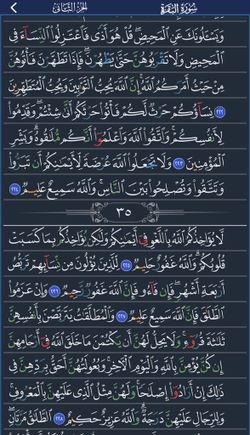 سُورَةُ البَقَرَةِ الجُزءُ الثَّانِي
وَيَسْـَٔلُونَكَ عَنِ ٱلْمَحِيضِ ۖ قُلْ هُوَ أَذًى فَٱعْتَزِلُوا۟ ٱلنِّسَآءَ فِى
ٱلْمَحِيضِ ۖ وَلَا تَقْرَبُوهُنَّ حَتَّىٰ يَطْهُرْنَ ۖ فَإِذَا تَطَهَّرْنَ فَأْتُوهُنَّ
مِنْ حَيْثُ أَمَرَكُمُ ٱللَّهُ ۚ إِنَّ ٱللَّهَ يُحِبُّ ٱلتَّوَّٰبِينَ وَيُحِبُّ ٱلْمُتَطَهِّرِينَ
٢٢٢ نِسَآؤُكُمْ حَرْثٌ لَّكُمْ فَأْتُوا۟ حَرْثَكُمْ أَنَّىٰ شِئْتُمْ ۖ وَقَدِّمُوا۟
لِأَنفُسِكُمْ ۚ وَٱتَّقُوا۟ ٱللَّهَ وَٱعْلَمُوٓا۟ أَنَّكُم مُّلَٰقُوهُ ۗ وَبَشِّرِ
ٱلْمُؤْمِنِينَ ٢٢٣ وَلَا تَجْعَلُوا۟ ٱللَّهَ عُرْضَةً لِّأَيْمَٰنِكُمْ أَن تَبَرُّوا۟
وَتَتَّقُوا۟ وَتُصْلِحُوا۟ بَيْنَ ٱلنَّاسِ ۗ وَٱللَّهُ سَمِيعٌ عَلِيمٌ ٢٢٤
٣٥
لَّا يُؤَاخِذُكُمُ ٱللَّهُ بِٱللَّغْوِ فِىٓ أَيْمَٰنِكُمْ وَلَٰكِن يُؤَاخِذُكُم بِمَا كَسَبَتْ
قُلُوبُكُمْ ۗ وَٱللَّهُ غَفُورٌ حَلِيمٌ ٢٢٥ لِّلَّذِينَ يُؤْلُونَ مِن نِّسَآئِهِمْ تَرَبُّصُ
أَرْبَعَةِ أَشْهُرٍ ۖ فَإِن فَآءُو فَإِنَّ ٱللَّهَ غَفُورٌ رَّحِيمٌ ٢٢٦ وَإِنْ عَزَمُوا۟
ٱلطَّلَٰقَ فَإِنَّ ٱللَّهَ سَمِيعٌ عَلِيمٌ ٢٢٧ وَٱلْمُطَلَّقَٰتُ يَتَرَبَّصْنَ بِأَنفُسِهِنَّ
ثَلَٰثَةَ قُرُوٓءٍ ۚ وَلَا يَحِلُّ لَهُنَّ أَن يَكْتُمْنَ مَا خَلَقَ ٱللَّهُ فِىٓ أَرْحَامِهِنَّ
إِن كُنَّ يُؤْمِنَّ بِٱللَّهِ وَٱلْيَوْمِ ٱلْءَاخِرِ ۚ وَبُعُولَتُهُنَّ أَحَقُّ بِرَدِّهِنَّ فِى
ذَٰلِكَ إِنْ أَرَادُوٓا۟ إِصْلَٰحًا ۚ وَلَهُنَّ مِثْلُ ٱلَّذِى عَلَيْهِنَّ بِٱلْمَعْرُوفِ ۚ
وَلِلرِّجَالِ عَلَيْهِنَّ دَرَجَةٌ ۗ وَٱللَّهُ عَزِيزٌ حَكِيمٌ ٢٢٨ ٱلطَّلَٰقُ مَرَّتَانِ ۖ